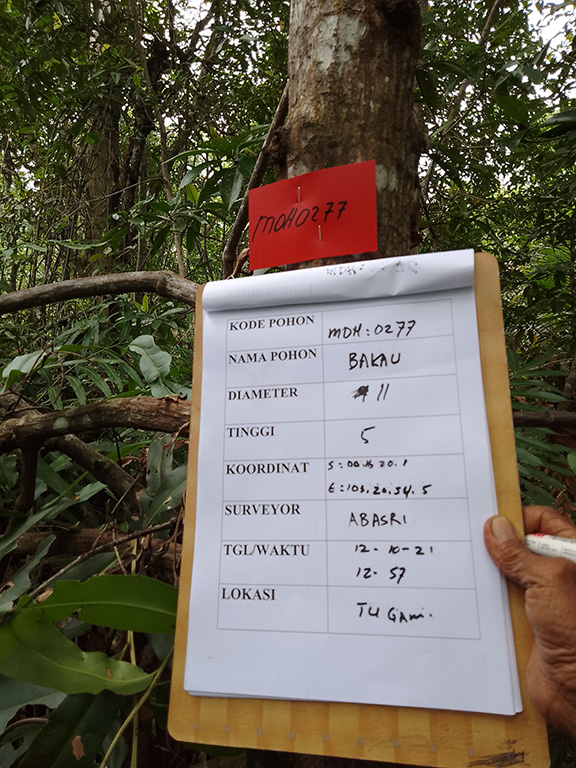 MDH0277
KODE POHON MDH:0277
NAMA POHON BAKAU
DIAMETER 11
TINGGI 5
KOORDINAT S:00.
E:103.20.54.5
SURVEYOR ABASRI
TGL/WAKTU 12-10-21
12.57
LOKASI